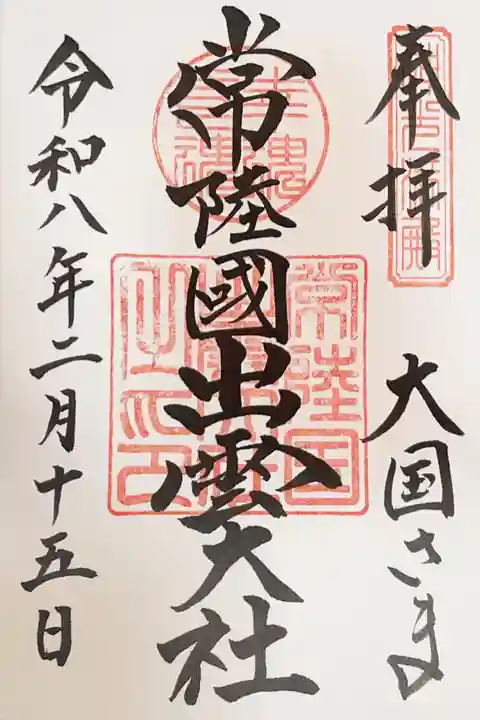 奉拝
大国さま
常陸國出雲大社
常陸国
令和八年二月十五日